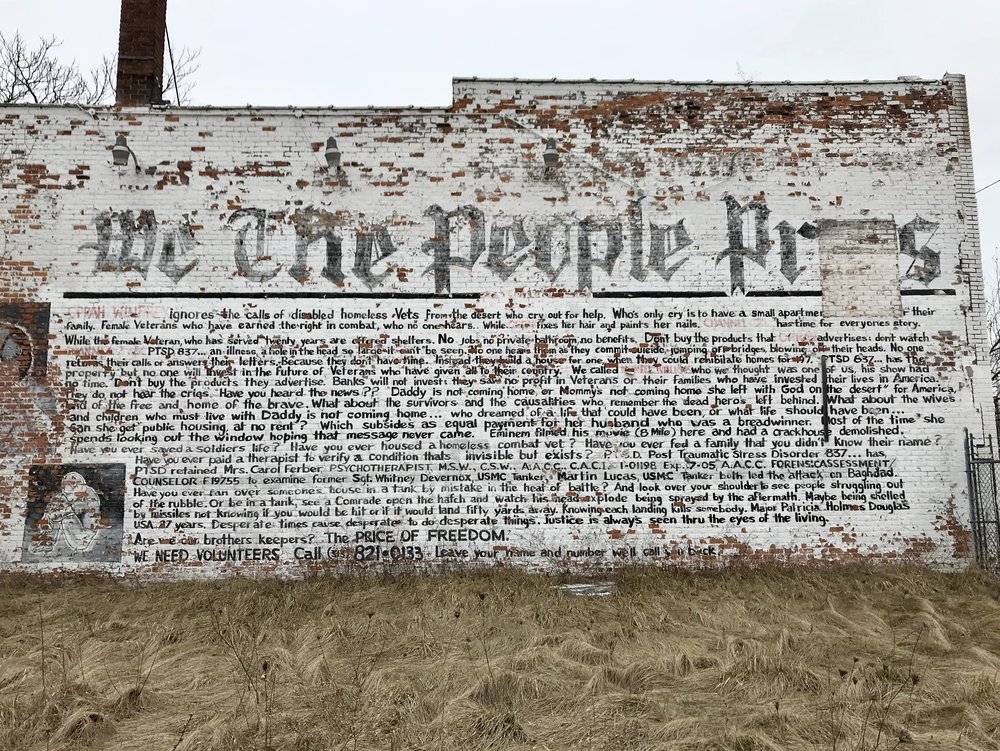 We The People Pr s
ignores the calls of disabled homeless Vets from the desert who cry out for help. Who's only cry is to have a small apartment their
family. Female Veterans who have earned the right in combat, who no one hears. While fixes her hair and paints her nails. CHANNEL has time for everyones story.
While the female Veteran, who has served twenty years are offered shelters. No Jobs, no private bathroom, no benefits. Don't buy the products that advertises: don't watch
PTSD 837... an illness, a hole in the head so large it can't be seen. No one hears them as they commit suicide jumping of bridges, blowing off their heads. No one
returns their calls or answers their letters. Because they don't have bling. Instead they build a house for one, when they could rehabilitate homes for 40? PTSD 637... has the
property but no one will invest in the Future of Veterans who have given all to their country. We called who we thought was one of us, his show had
no time. Don't buy the products they advertise. Banks will not invest: they say no profit in Veterans or their families who have invested their lives in America.
They do not hear the crigs. Have you heard the news??  Daddy is not coming home, or Mommy's not coming home she left with God on the desert for America,
land of the free and home of the brave. What about the survivors and the causalities who remember the dead hero's left behind. What about the wives
and children who must live with Daddy is not coming home... who dreamed of a life that could have been, or what life should have been...
Can she get public housing at no rent? Which subsides as equal payment for her husband who was a breadwinner. Most of the time she
spends looking out the window hoping that message never came. Eminem filmed his movie (8 Mile) here and had a crackhouse demolished
Have you ever saved a soldiers life? Have you ever housed a homeless combat vet? Have you ever fed a family that you didn't know their name?
Have you ever paid a therapist to verify a condition thats invisible but exists? P.T.S.D. Post Traumatic Stress Disorder 837... has,
PTSD retained Mrs. Carol Ferber, PSYCHOTHERAPIST, M.S.W., C.S.W., A.A.C.C., C.A.C.I., I-01198 Exp. 7-05, A.A.C.C. FORENSICASSESSMENT/
COUNSELOR F19755 to examine former Sgt. Whitney Devernox, USMC Tanker, Martin Lucas, USMC Tanker both led the attack on Baghdad
Have you ever ran over someones house in a tank by mistake in the heat of battle? And look over your shoulder to see people struggling out
of the rubble. Or be in a tank, see a Comrade open the hatch and watch his head explode being sprayed by the aftermath. Maybe being shelled
by missiles not knowing if you would be hit or if it would land fifty yards away. Knowing each landing kills somebody. Major Patricia Holmes Douglas
USA. 27 years. Desperate times cause desperate to do desperate things. Justice is always seen thru the eyes of the living.
Are we our brothers keepers? The PRICE OF FREEDOM.
WE NEED VOLUNTEERS Call (313) 821-0133 Leave your name and number we'll call you back